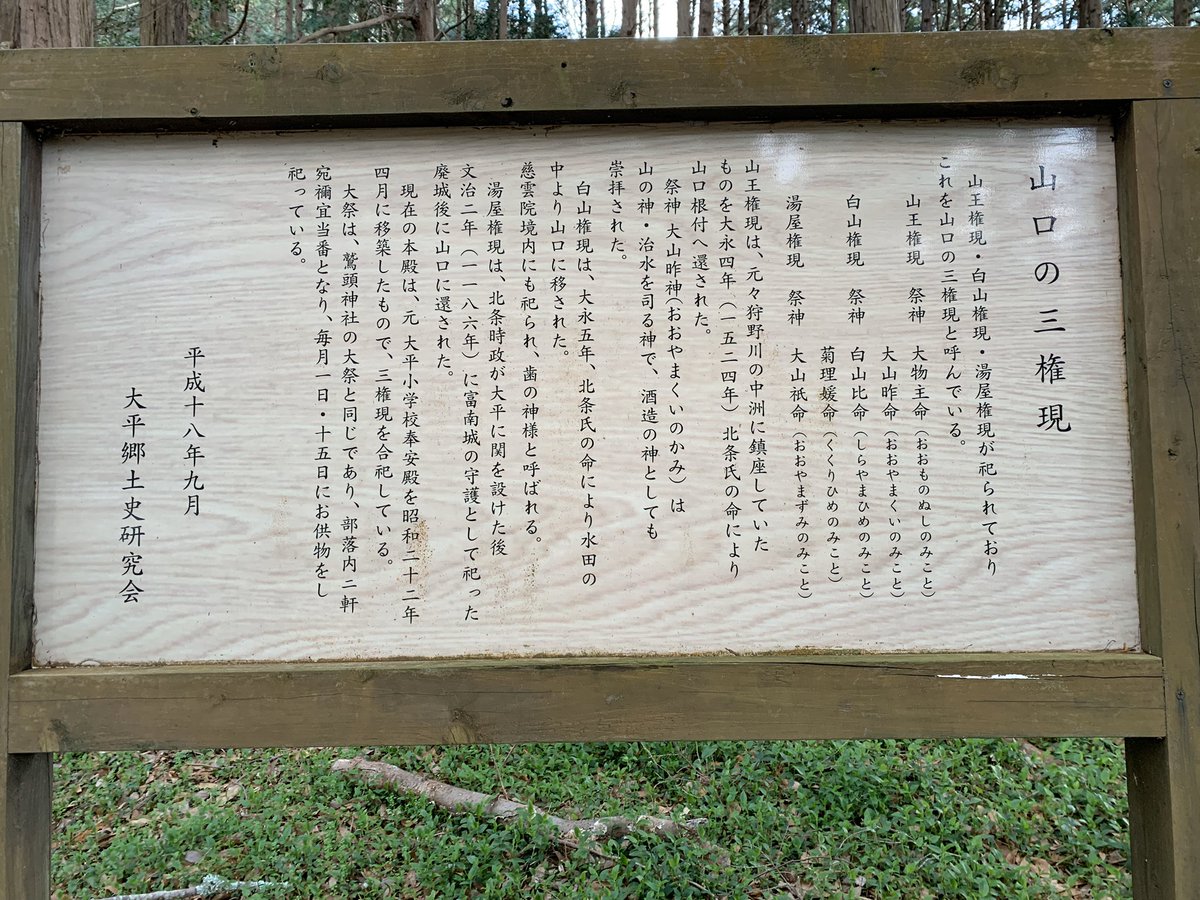 山口の三権現
山王権現・白山権現・湯屋権現が祀られており
これを山口の三権現と呼んでいる。
山王権現　祭神　大物主命（おおものぬしのみこと）
大山昨命（おおやまくいのみこと）
白山権現　祭神　白山比命（しらやまひめのみこと）
菊理媛命（くくりひめのみこと）
湯屋権現　祭神　大山祇命（おおやまずみのみこと）
山王権現は、元々狩野川の中洲に鎮座していた
ものを大永四年（一五二四年）北条氏の命により
山口根付へ還された。
祭神 大山昨神（おおやまくいのかみ）は
山の神・治水を司る神で、酒造の神としても
崇拝された。
白山権現は、大永五年、北条氏の命により水田の
中より山口に移された。
慈雲院境内にも祀られ、歯の神様と呼ばれる。
湯屋権現は、北条時政が大平に関を設けた後
文治二年（一一八六年）に富南城の守護として祀った
廃城後に山口に還された。
現在の本殿は、元 大平小学校奉安殿を昭和二十二年
四月に移築したもので、三権現を合祀している。
大祭は、鷲頭神社の大祭と同じであり、部落内二軒
宛禰宜当番となり、毎月一日・十五日にお供物をし
祀っている。
平成十八年九月
大平郷土史研究会